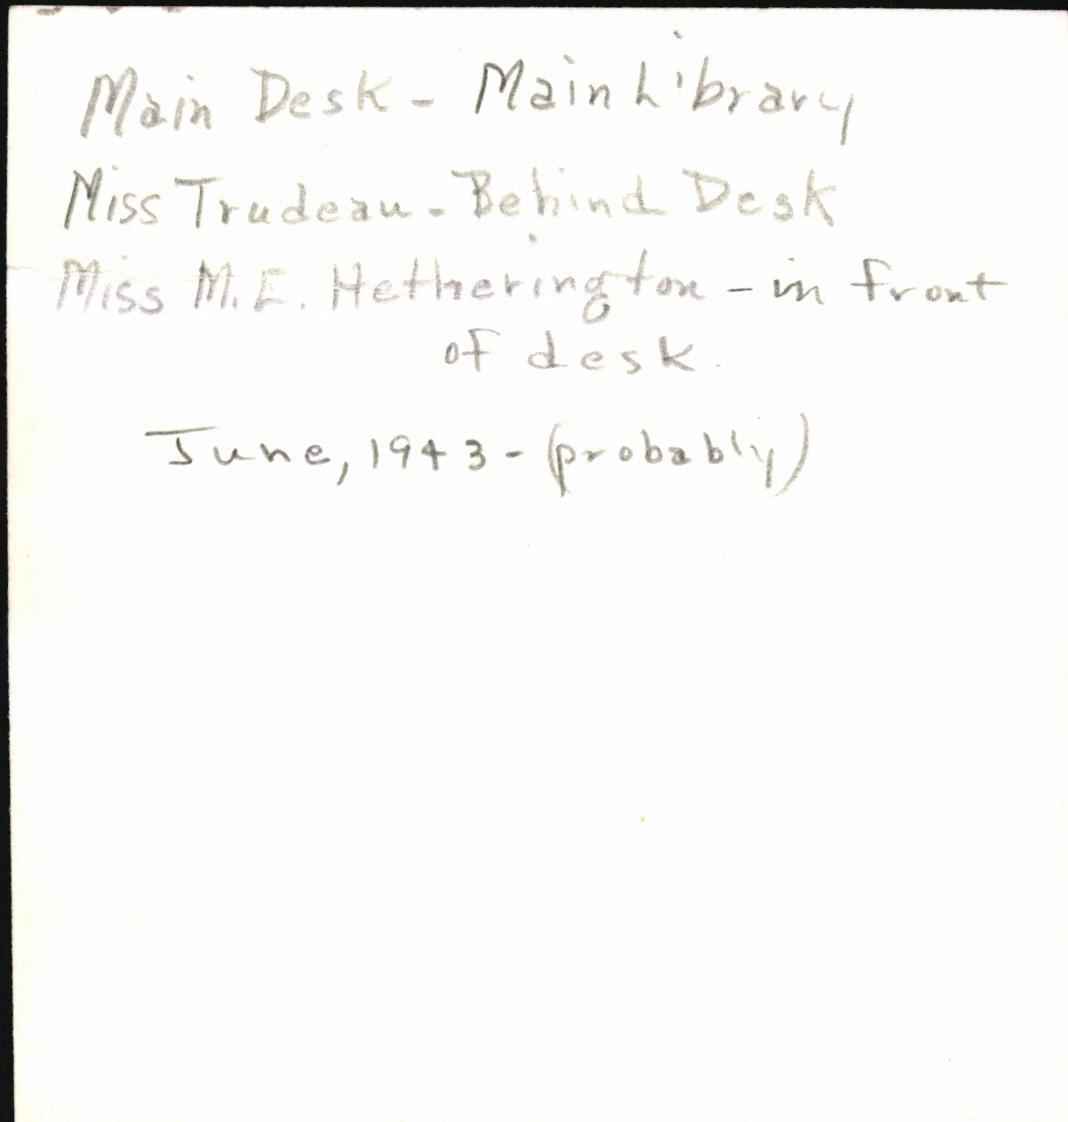 Main Desk - Main Library
Miss Trudeau - Behind Desk
Miss M.E. Hetherington - in front
of desk.
June, 1943 - (probably)